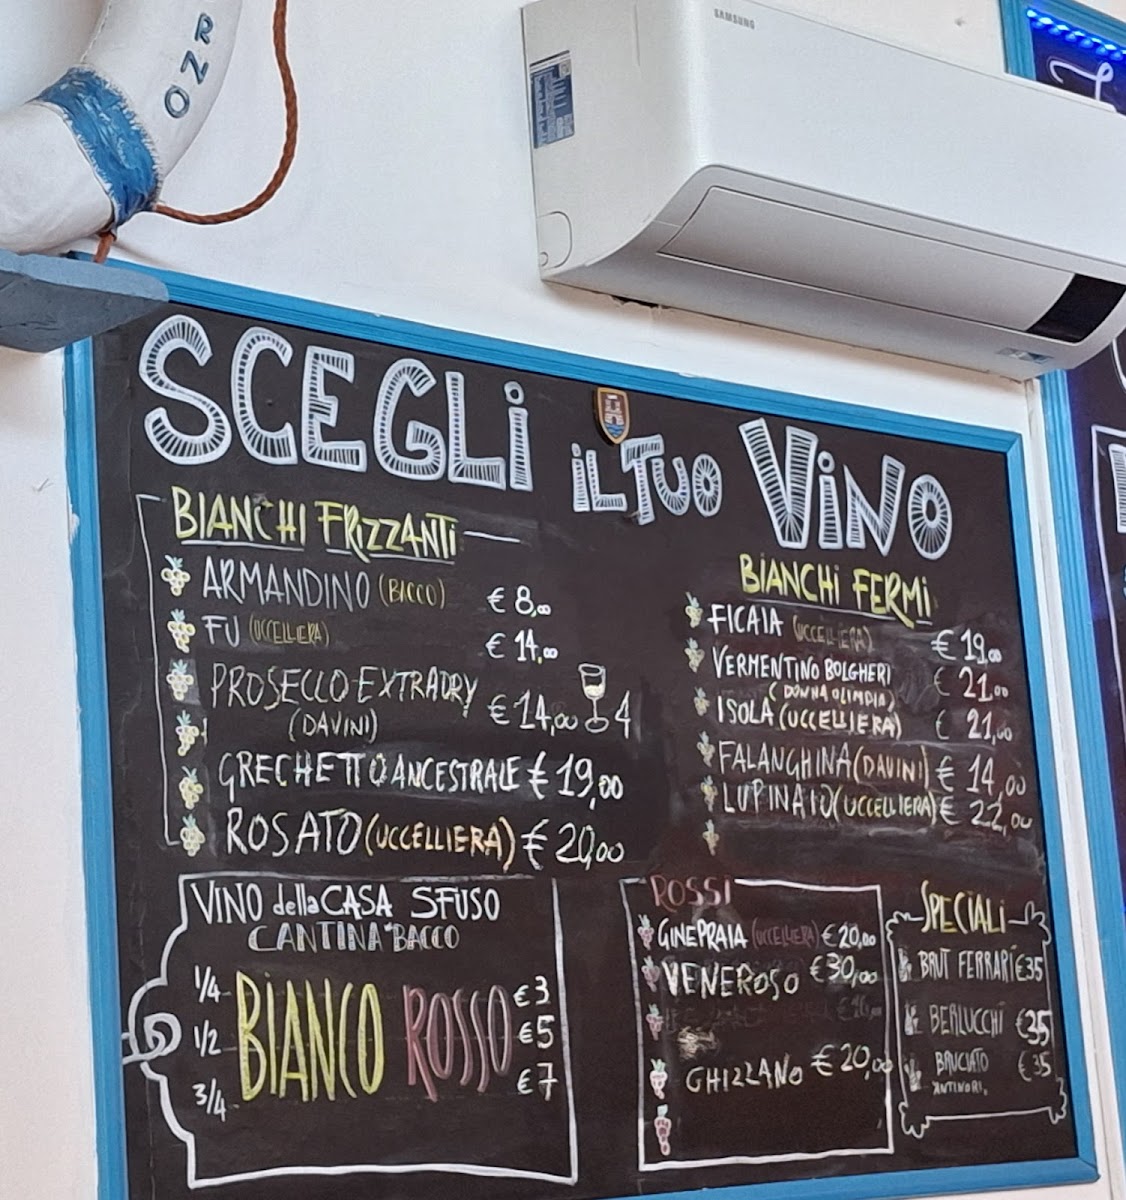 RNO
SAMSUNG
SCEGLI IL TUO VINO
BIANCHI FRIZZANTI
ARMANDINO (BACCO) € 8,00
FU (UCCELLIERA) € 14,00
PROSECCO EXTRADRY € 14,00 4
(DAVINI)
GRECHETTO ANCESTRALE € 19,00
ROSATO (UCCELLIERA) € 20,00
BIANCHI FERMI
FICAIA (UCCELLIERA) € 19,00
VERMENTINO BOLGHERI € 21,00
(DONNA OLIMPIA)
ISOLA (UCCELLIERA) € 21,00
FALANGHINA (DAVINI) € 14,00
LUPINAIO (UCCELLIERA) € 22,00
VINO della CASA SFUSO
CANTINA "BACCO
1/4 €3
1/2 BIANCO ROSSO €5
3/4 €7
ROSSI
GINEPRAIA (UCCELLIERA) €20,00
VENEROSO €30,00
GHIZZANO €20,00
SPECIALI
BRUT FERRARI €35
BERLUCCHI €35
BRUCIATO €35
ANTINORI.